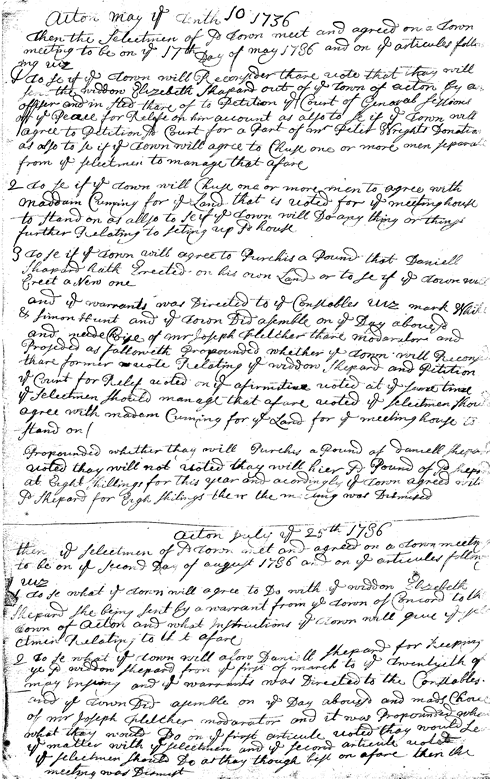 Acton May ye tenth 10 1736
Then the Selectmen of sd Town meet and agreed on a Town
meeting to be on ye 17th Day of may 1736 and on ye articules follow
ing viz
1 to se if ye town will Reconsider thare vote that thay will
the widdow Elizabeth Shapard out of ye Town of acton by a
offser and in sted thare of to Petition ye Court of General Sessions
of ye Peace for Relefe on hir account as also to se if ye Town will
agree to Petition sd Court for a Part of mr Peter Wrights Donation
as also to se if ye Town will agree to Chuse one or more men separate
from ye selectmen to manage that afare
2 to se if ye town will Chuse one or more men to agree with
maddam Cuming for ye Land that is voted for ye meetinghouse
to stand on as allso to se if ye town will Do any thing or things
further Relating to seting up sd house
3 to se if ye town will agree to Purchis a Pound that Daniell
Shapard hath Erected on his own Land or to se if ye town will
Erect a New one
and ye warrants was Directed to ye Constables viz mark White
& Simon Hunt and ye town Did asemble on ye Day abovesd
and made Coyce of mr Joseph fletcher thare modarator and
Proseded as followeth Propounded whether ye town will Reconsider
thare former vote Relating ye widdow Shepard and Petition
ye Court for Relef voted on ye afirmitive voted at ye same time
ye Selectmen should manage that afare voted ye selectmen should
agree with madam Cuming for ye Land for ye meetinghouse to
stand on
Propounded whether thay will Purchis a Pound of Daniell Shepard
voted thay will not voted thay will hier sd Pound of sd Shepard
at Eight shillings for this year and acordingly ye town agreed with
sd Shepard for Eigh shilings then the meeting was Dismised
Acton July ye 25th 1736
then ye selectmen of sd Town met and agreed on a town meeting
to be on ye second Day of august 1736 and on ye articules follow
viz
1 to se what ye town will agree to Do with ye widdow Elizabeth
Shepard she being sent by a warrant from ye town of Concord to the
town of Acton and what instructions ye town will give ye select
men Relating to that afare
2 to se what ye town will alow Daniell Shepard for keeping
ye sd widdow Shepard from ye first of march to ye twentieth of
may Insuing and ye warrants was Directed to the Constables
and ye town Did asemble on ye Day abovesd and made Choice
of mr Joseph fletcher modarator and it was Propounded
what thay would Do on ye first articule voted thay would
ye matter with ye selectmen and ye second articule voted
ye selectmen should Do as thay though best on afare then the
meeting was Dismist